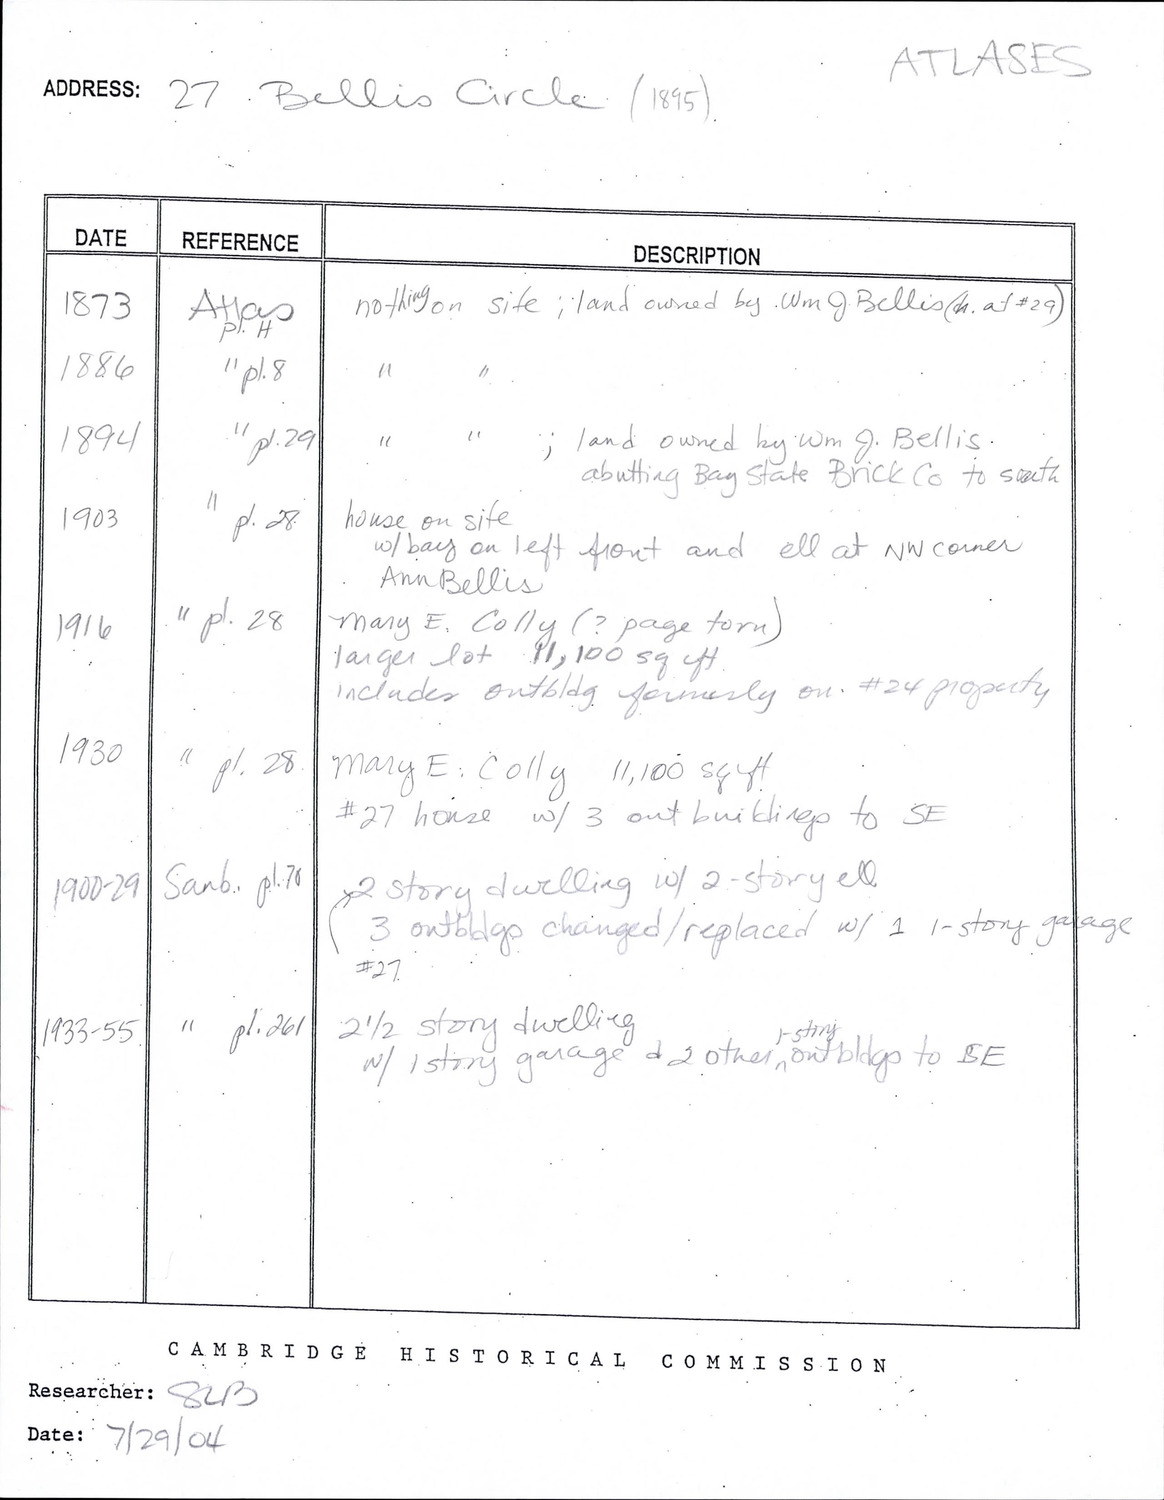 ATLASES
ADDRESS: 27 Bellis Circle (1895)
DATE REFERENCE DESCRIPTION
1873 Atlas pl. H nothing on site ; land owned by Wm J. Bellis (h. at #29)
1886 " pl. 8 " "
1894 " pl. 29 " " ; land owned by Wm J. Bellis.
abutting Bay State Brick Co to south
1903 " pl. 28 house on site
w/ bay on left front and ell at NW corner
Ann Bellis
1916 " pl. 28 Mary E. Colly (? page torn)
larger lot 11,100 sq ft
includes outbldg formerly on #24 property
1930 " pl. 28 Mary E. Colly 11,100 sq ft
#27 house w/ 3 out buildings to SE
1900-29 Sanb. pl. 70 2 story dwelling w/ 2-story ell
3 outbldgs changed/replaced w/ 1 1-story garage
#27
1933-55 " pl. 261 2 1/2 story dwelling
w/ 1 story garage & 2 other 1-story outbldgs to SE
CAMBRIDGE HISTORICAL COMMISSION
Researcher: SLB
Date: 7/29/04